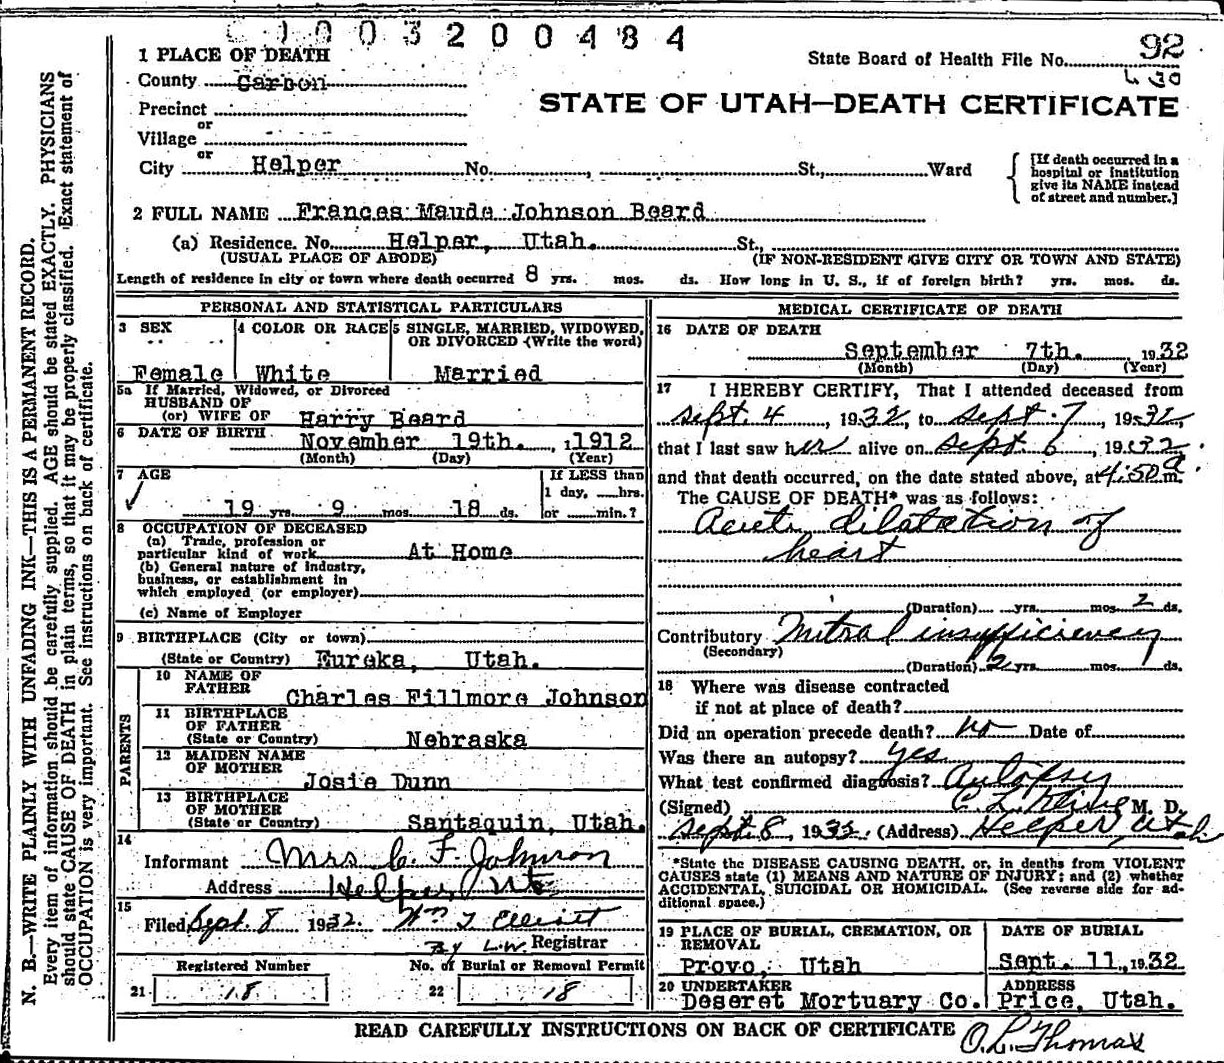 1003200484
State Board of Health File No. 92
STATE OF UTAH—DEATH CERTIFICATE
1 PLACE OF DEATH
County Carbon
Precinct
or
Village
or
City Helper No. St., Ward
{ [If death occurred in a hospital or institution give its NAME instead of street and number.]
2 FULL NAME Frances Maude Johnson Beard
(a) Residence. No. Helper, Utah. St.,
(USUAL PLACE OF ABODE) (IF NON-RESIDENT GIVE CITY OR TOWN AND STATE)
Length of residence in city or town where death occurred 8 yrs. mos. ds. How long in U. S., if of foreign birth? yrs. mos. ds.
PERSONAL AND STATISTICAL PARTICULARS
3 SEX
Female
4 COLOR OR RACE
White
5 SINGLE, MARRIED, WIDOWED, OR DIVORCED (Write the word)
Married
5a If Married, Widowed, or Divorced
HUSBAND OF
(or) WIFE OF Harry Beard
6 DATE OF BIRTH November 19th. , 1912
(Month) (Day) (Year)
7 AGE
19 yrs. 9 mos. 18 ds.
If LESS than
1 day, hrs.
or min.?
8 OCCUPATION OF DECEASED
(a) Trade, profession or
particular kind of work At Home
(b) General nature of industry,
business, or establishment in
which employed (or employer)
(c) Name of Employer
9 BIRTHPLACE (City or town)
(State or Country) Eureka, Utah.
PARENTS
10 NAME OF
FATHER Charles Fillmore Johnson
11 BIRTHPLACE
OF FATHER
(State or Country) Nebraska
12 MAIDEN NAME
OF MOTHER
Josie Dunn
13 BIRTHPLACE
OF MOTHER
(State or Country) Santaquin, Utah.
14
Informant Mrs C. F. Johnson
Address Helper, Ut
15
Filed Sept. 8 1932. Wm T Elliott
By L.W. Registrar
Registered Number No. of Burial or Removal Permit
21 18 22 18
MEDICAL CERTIFICATE OF DEATH
16 DATE OF DEATH
September 7th. 1932
(Month) (Day) (Year)
17 I HEREBY CERTIFY, That I attended deceased from
Sept. 4, 1932, to Sept. 7, 1932,
that I last saw her alive on Sept 6, 1932,
and that death occurred, on the date stated above, at 4:50 a m.
The CAUSE OF DEATH* was as follows:
Acute dilatation of
heart
(Duration) yrs. mos. 2 ds.
Contributory Mitral insufficiency
(Secondary)
(Duration) 2 yrs. mos. ds.
18 Where was disease contracted
if not at place of death?
Did an operation precede death? No Date of
Was there an autopsy? yes
What test confirmed diagnosis? Autopsy
(Signed) C. L. M. D.
Sept. 8, 193 (Address) Helper, Utah
*State the DISEASE CAUSING DEATH, or, in deaths from VIOLENT
CAUSES state (1) MEANS AND NATURE OF INJURY; and (2) whether
ACCIDENTAL, SUICIDAL OR HOMICIDAL. (See reverse side for ad-
ditional space.)
19 PLACE OF BURIAL, CREMATION, OR
REMOVAL
Provo, Utah
DATE OF BURIAL
Sept. 11, 1932
20 UNDERTAKER
Deseret Mortuary Co.
ADDRESS
Price, Utah.
READ CAREFULLY INSTRUCTIONS ON BACK OF CERTIFICATE O. L. Thomas
N. B.—WRITE PLAINLY WITH UNFADING INK—THIS IS A PERMANENT RECORD.
Every item of information should be carefully supplied. AGE should be stated EXACTLY. PHYSICIANS
should state CAUSE OF DEATH in plain terms, so that it may be properly classified. Exact statement of
OCCUPATION is very important. See instructions on back of certificate.